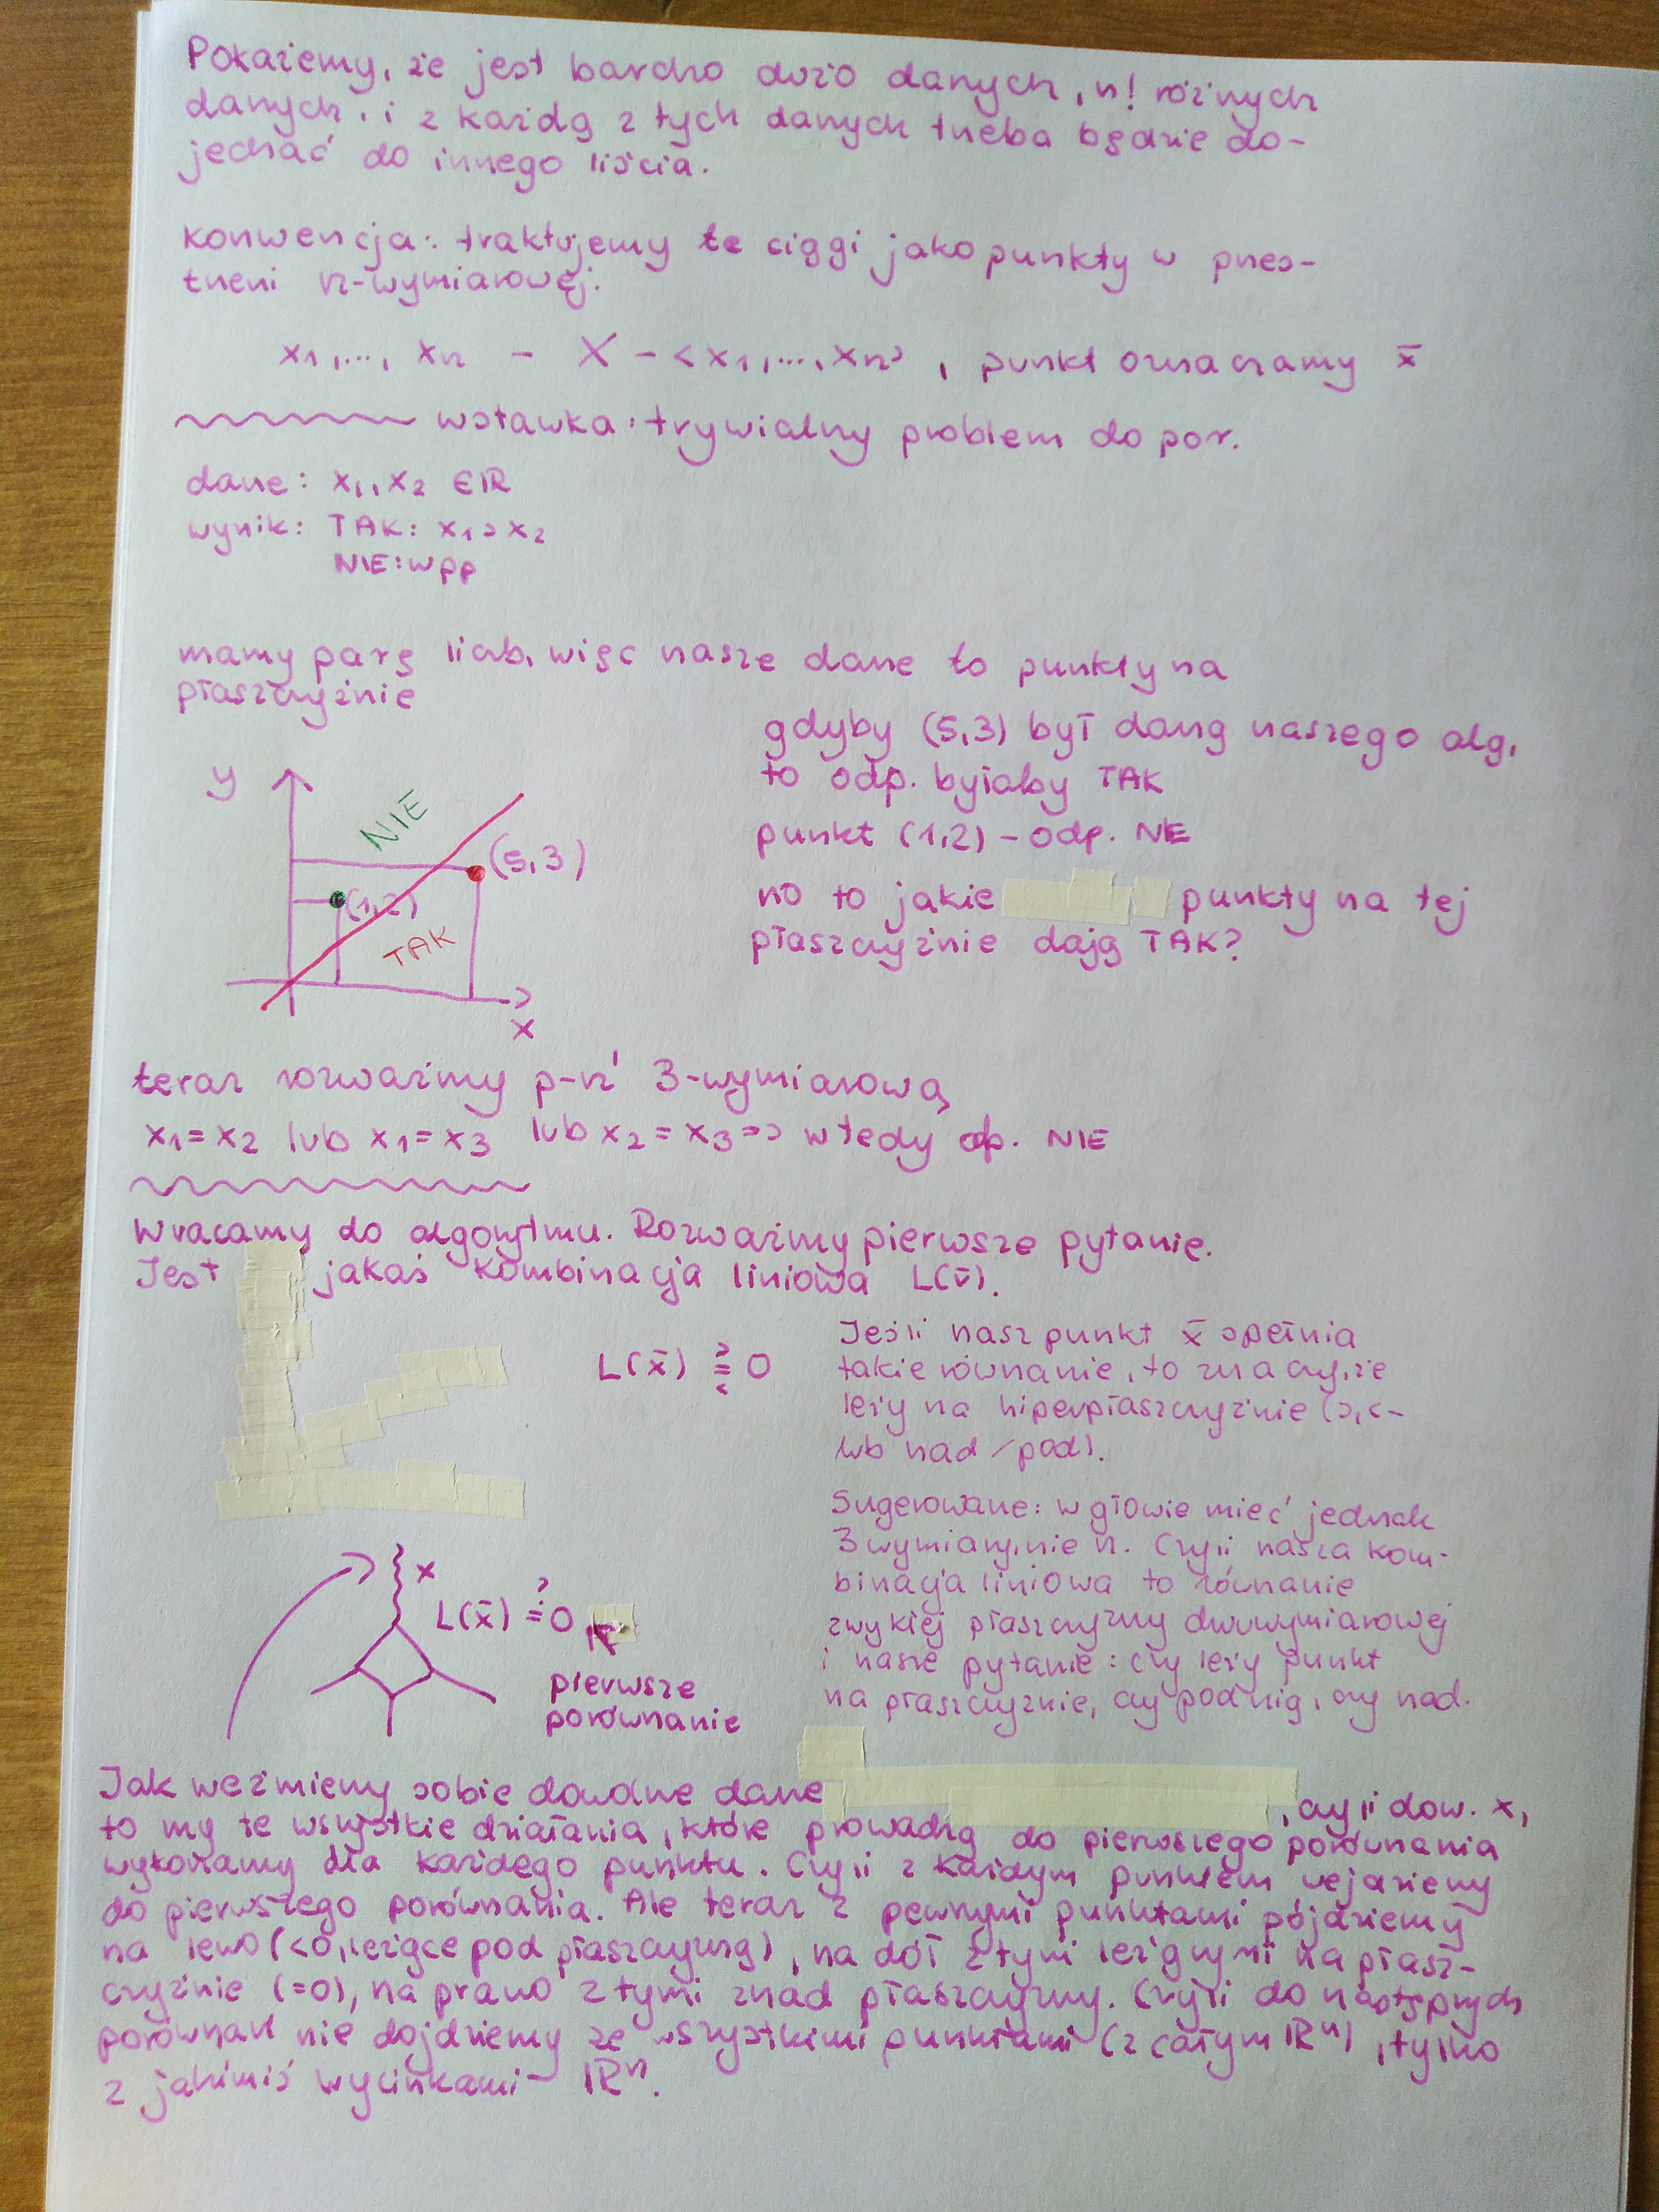 Pokażemy, że jest bardzo dużo danych, n! różnych
danych, i z każdą z tych danych trzeba będzie do-
jechać do innego liścia.
konwencja: traktujemy te ciągi jako punkty w przes-
trzeni n-wymiarowej:
x1,..., xn - X - <x1,...,xn> , punkt oznaczamy x̄
wstawka: trywialny problem do por.
dane: x1, x2 ∈ ℝ
wynik: TAK: x1 > x2
NIE: wpp
mamy parę liczb, więc nasze dane to punkty na
płaszczyźnie
gdyby (5,3) był daną naszego alg,
to odp. byłaby TAK
punkt (1,2) - odp. NIE
no to jakie punkty na tej
płaszczyźnie dają TAK?
y
NIE
(5,3)
(1,2)
TAK
x
teraz rozważmy p-ń 3-wymiarową
x1 = x2 lub x1 = x3 lub x2 = x3 => wtedy op. NIE
Wracamy do algorytmu. Rozważmy pierwsze pytanie.
Jest jakaś kombinacja liniowa L(x̄).
L(x̄) ⪌ 0
Jeśli nasz punkt x̄ spełnia
takie równanie, to znaczy, że
leży na hiperpłaszczyźnie (>,< -
lub nad/pod).
Sugerowane: w głowie mieć jednak
3 wymiary, nie n. Czyli nasza kom-
binacja liniowa to równanie
zwykłej płaszczyzny dwuwymiarowej
i nasze pytanie: czy leży punkt
na płaszczyźnie, czy pod nią, czy nad.
x
L(x̄) ≟ 0
pierwsze
porównanie
Jak weźmiemy sobie dowolne dane , czyli dow. x,
to my te wszystkie działania, które prowadzą do pierwszego porównania
wykonamy dla każdego punktu. Czyli z każdym punktem wejdziemy
do pierwszego porównania. Ale teraz z pewnymi punktami pójdziemy
na lewo (<0, leżące pod płaszczyzną), na dół z tymi leżącymi na płasz-
czyźnie (=0), na prawo z tymi znad płaszczyzny. Czyli do następnych
porównań nie dojdziemy ze wszystkimi punktami (z całym ℝⁿ), tylko
z jakimiś wycinkami ℝⁿ.